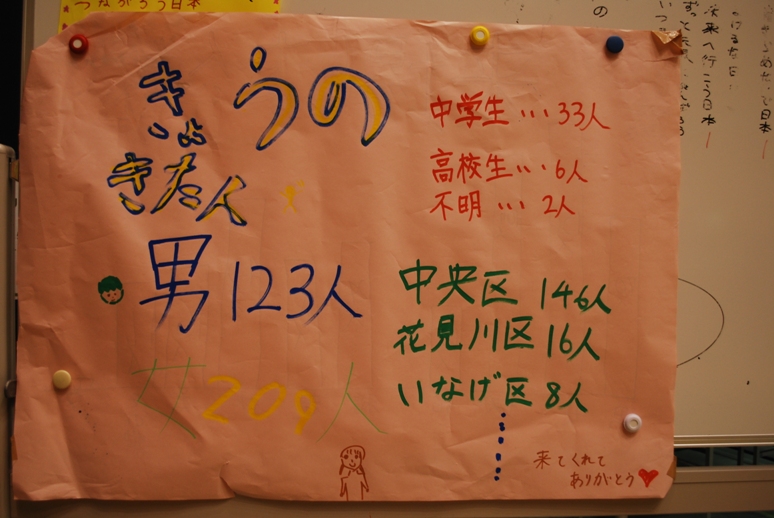 つながろう日本
きょうの
きたん
中学生…33人
高校生…6人
不明…2人
男123人
女209人
中央区 146人
花見川区16人
いなげ区 8人
来てくれて
ありがとう
の
未来へ行こう日本
日本